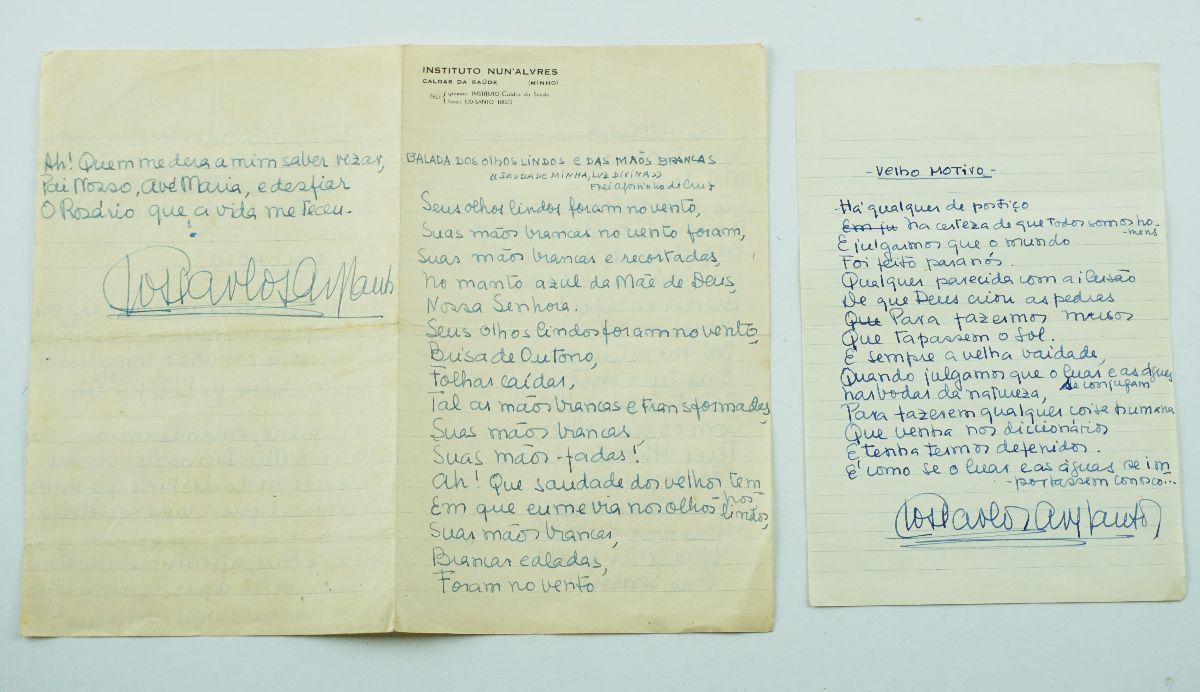 Ah! Quem me dera a mim saber rezar,
Pai Nosso, Avé Maria, e desfiar
O Rosário que a vida me teceu.
INSTITUTO NUN'ALVRES
CALDAS DA SAÚDE (MINHO)
TELE gramas: INSTITUTO-Caldas da Saúde
fone: 100-SANTO TIRSO
BALADA DOS OLHOS LINDOS E DAS MÃOS BRANCAS
«SAUDADE MINHA, LUZ DIVINA»
Frei Agostinho da Cruz
Seus olhos lindos foram no vento,
Suas mãos brancas no vento foram,
Suas mãos brancas e recostadas,
No manto azul da Mãe de Deus,
Nossa Senhora.
Seus olhos lindos foram no vento
Brisa de Outono,
Folhas caídas,
Tal as mãos brancas e transformadas,
Suas mãos brancas,
Suas mãos-fadas!
Ah! Que saudade dos velhos tempos
Em que eu me via nos olhos lindos,
Suas mãos brancas,
Brancas caladas,
Foram no vento
- VELHO MOTIVO -
Há qualquer de postiço
Em ju na certeza de que todos somos homens
E julgarmos que o mundo
Foi feito para nós.
Qualquer parecida com a ilusão
De que Deus criou as pedras
Que Para fazermos muros
Que tapassem o Sol.
É sempre a velha vaidade,
Quando julgamos que o luar e as águas
se conjugam
nas bodas da natureza,
Para fazerem qualquer coisa humana
Que venha nos diccionários
E tenha termos defenidos.
É como se o luar e as águas se im
-portassem conosco...